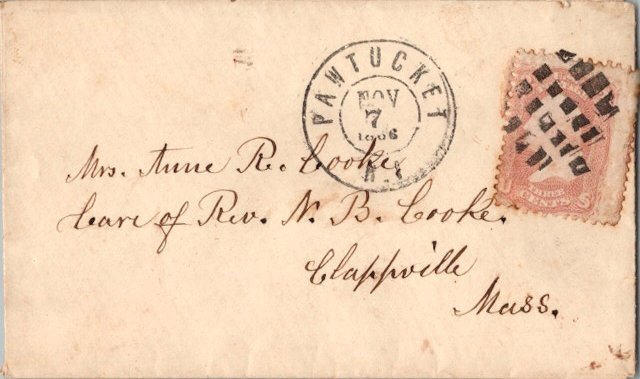 PAWTUCKET
NOV
7
1866
R.I
Mrs. Anne R. Cooke,
Care of Rev. N. B. Cooke.
Clappville
Mass.
THREE
CENTS